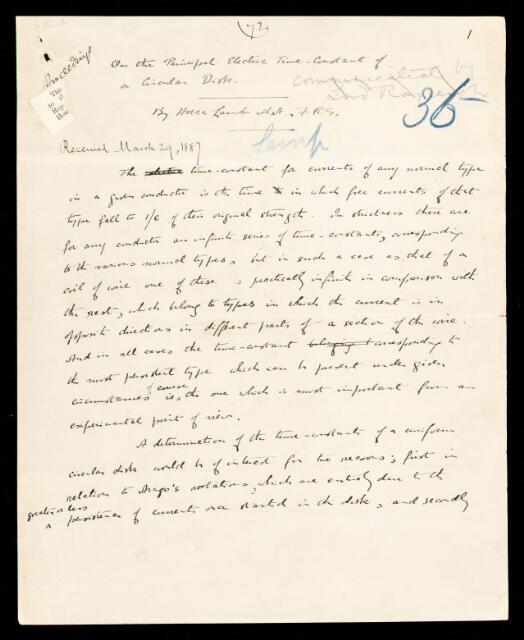 72
1
Proceedings
On the Principal Electric Time-Constant of
a Circular Disk.
Communicated by
Lord Rayleigh
36
By Horace Lamb M.A., F.R.S.
Lamb
Received March 29, 1887
The electric time-constant for currents of any normal type
in a given conductor is the time in which free currents of that
type fall to 1/e of their original strength. In strictness there are
for any conductor an infinite series of time-constants, corresponding
to the various normal types, but in such a case as that of a
coil of wire one of these is practically infinite in comparison with
the rest, which belong to types in which the current is in
opposite directions in different parts of a section of the wire.
And in all cases the time-constant belonging to corresponding to
the most persistent type which can be present under given
circumstances is, of course, the one which is most important from an
experimental point of view.
A determination of the time-constants of a uniform
circular disk would be of interest for two reasons; first in
relation to Arago's rotations, which are entirely due to the
greater or less
persistence of currents once started in the disk, and secondly